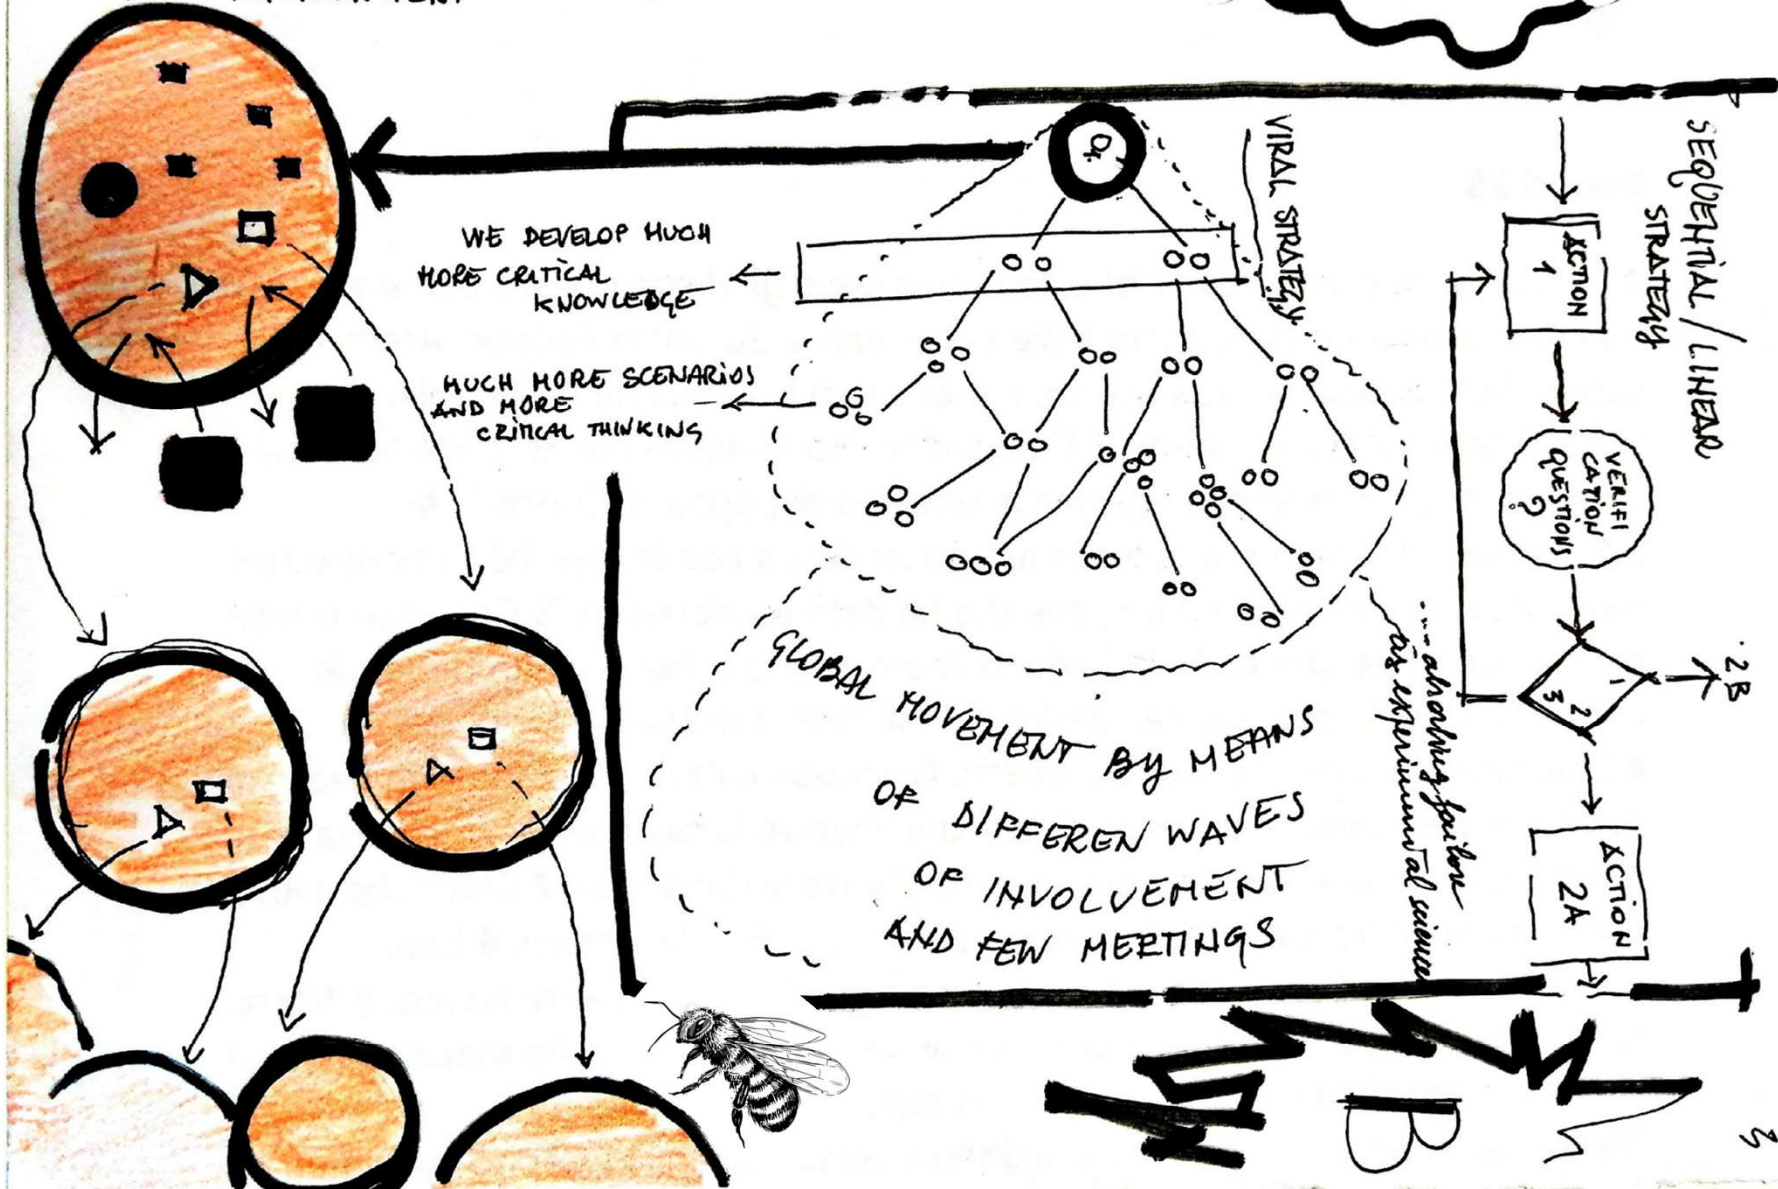 WE DEVELOP MUCH
MORE CRITICAL
KNOWLEDGE
MUCH MORE SCENARIOS
AND MORE
CRITICAL THINKING
VIRAL STRATEGY
SEQUENTIAL / LINEAR
STRATEGY
ACTION
1
VERIFI
CATION
QUESTIONS
?
1
2
3
2B
ACTION
2A
... absorbing failure
as experimental science
GLOBAL MOVEMENT BY MEANS
OF DIFFEREN WAVES
OF INVOLVEMENT
AND FEW MEETINGS
B
3